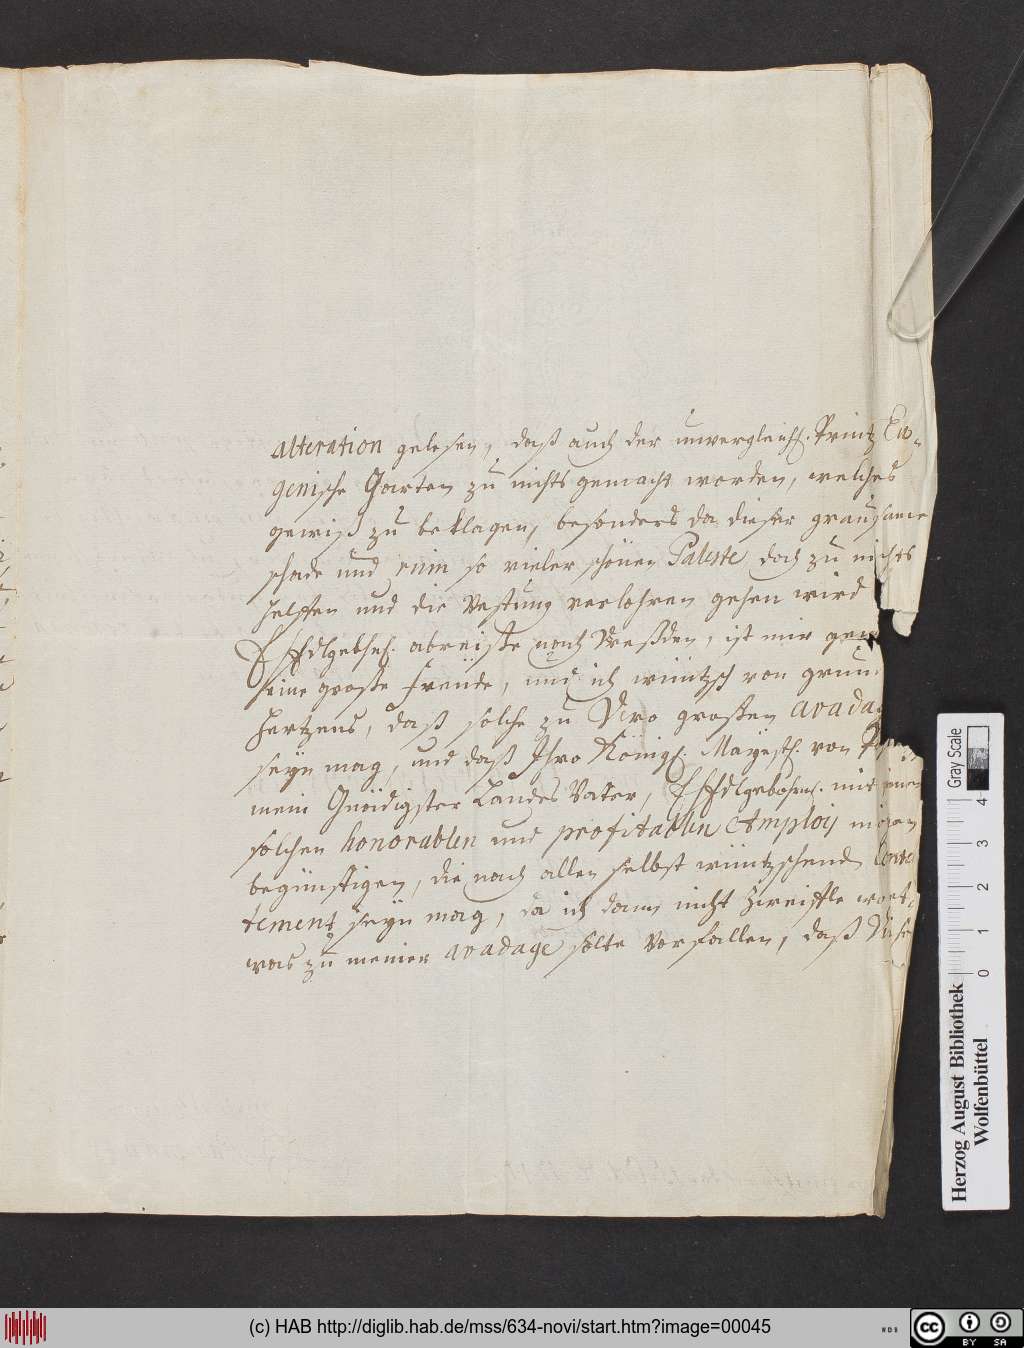 alteration gelesen, daß auch der unvergleichl. Printz Eu-
genische Garten zu nichts gemacht worden, welches
gewiß zu beklagen, besonders da dieser grausame
schade und ruin so vieler schönen Paleste doch zu nichts
helffen und die Vestung verlohren gehen wird
abreißte nach Dreßden, ist mir
eine große freüde, und ich wüntsch von grun
hertzens, daß solche zu Dero großen avada
seyn mag, und daß Ihro Königl. Mayestt. von
mein Gnädigster Landes Vater, mit einen
solchen honorablen und profitablen Employ mögen
begünstigen, die nach allen selbst wüntschend Conte
tement seyn mag, da ich dann nicht zweiffle
was zu meiner avadage solte vorfallen, daß
Herzog August Bibliothek
Wolfenbüttel
Gray Scale
0 1 2 3 4
(c) HAB http://diglib.hab.de/mss/634-novi/start.htm?image=00045
WDB
cc BY SA